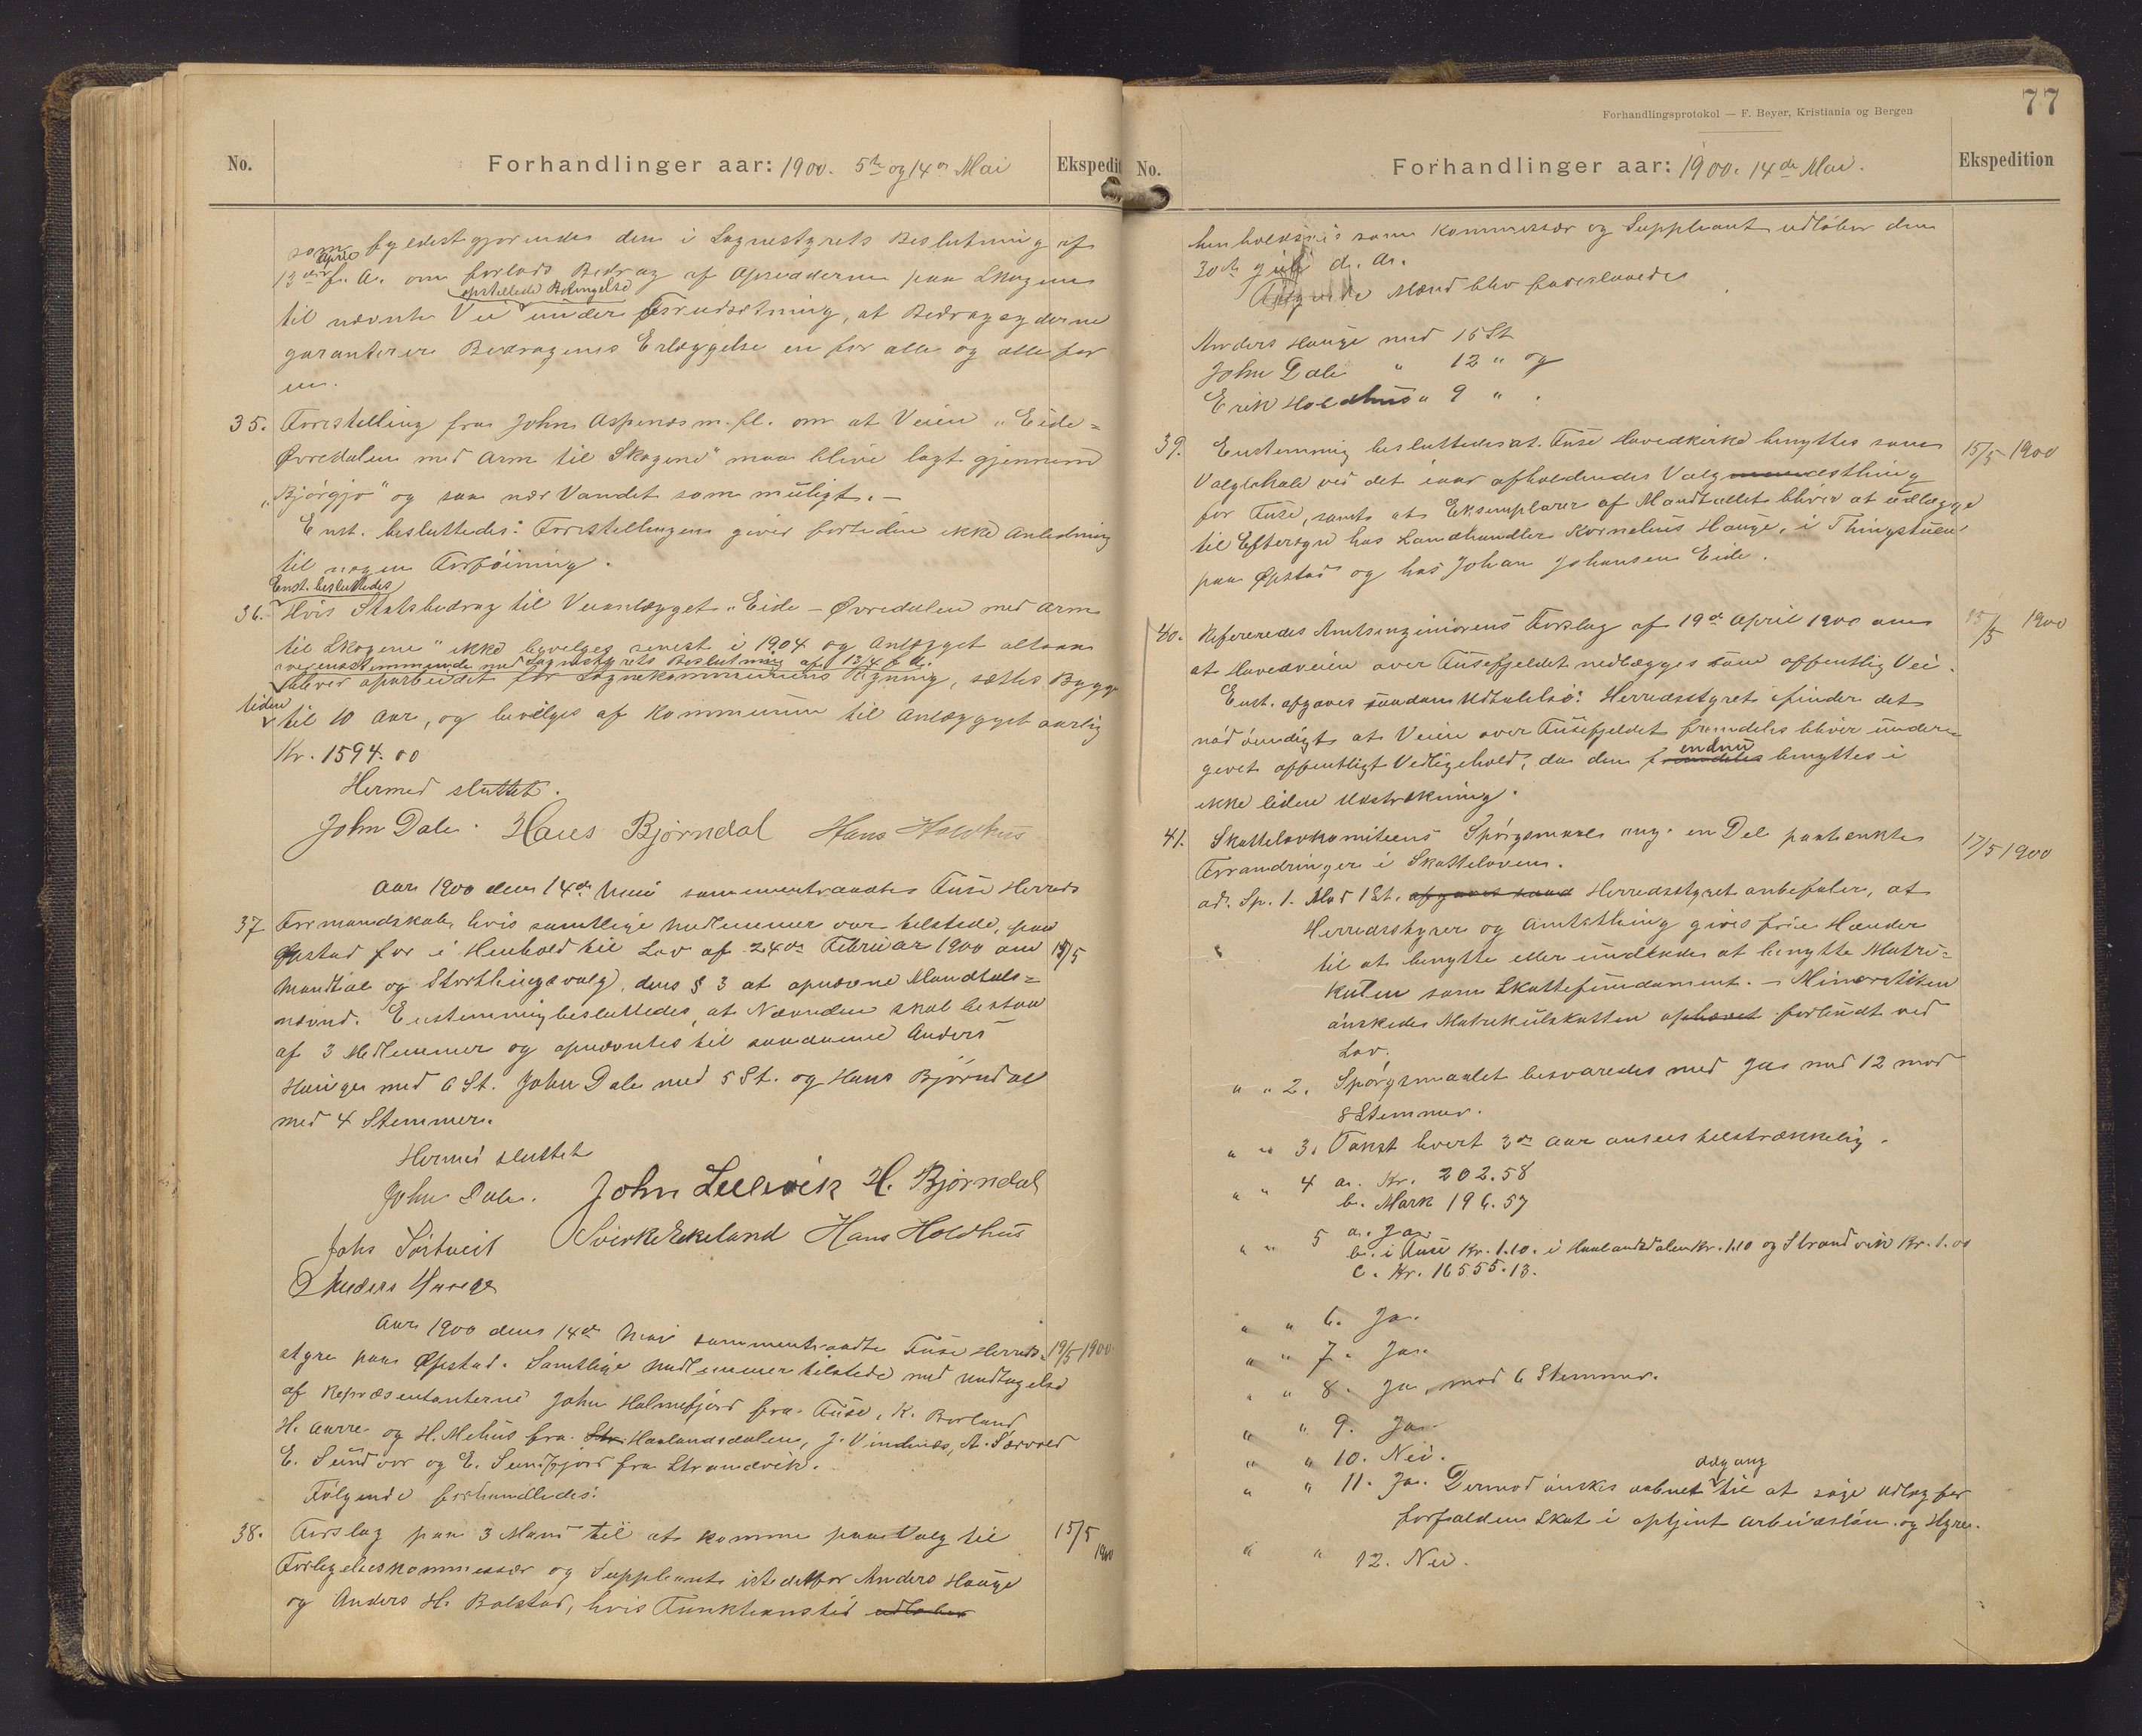 No.
Forhandlinger aar: 1900. 5te og 14de Mai
Ekspedit
som fyldestgjørende den i Sognestyrets Beslutning af
April
13de f. A. om forlods Bidrag af Opsidderne paa Skogene
opstillede Betingelse
til nævnte Vei under Forudsætning, at Bidragsyderne
garanterer Bidragenes Erlæggelse en for alle og alle for
en.
35. Forestilling fra John Aspenæs m. fl. om at Veien „Eide-
Øvredalen med Arm til Skogene" maa blive lagt gjennem
„Bjørgjo" og saa nær Vandet som muligt. —
Enst. besluttedes: Forestillingen giver fortiden ikke Anledning
til nogen Forføining.
Enst. besluttedes
36. Hvis Statsbidrag til Veianlægget „Eide - Øvredalen med Arm
til Skogene" ikke bevilges senest i 1904 og Anlægget altsaa
overensstemmende med Sognestyrets Beslutning af 13/4 f. A.
bliver oparbeidet for Sognekommunens Regning, sættes Bygge
tiden
til 10 Aar, og bevilges af Kommunen til Anlægget aarlig
Kr. 1594.00
Hermed sluttet.
John Dale. Hans Bjørndal Hans Holdhus
Aar 1900 den 14de Mai sammentraadte Fuse Herreds
37 Formandskab, hvis samtlige Medlemmer var tilstede, paa
Øpstad for i Henhold til Lov af 24de Februar 1900 om
15/5
Mandtal og Storthingsvalg, dens § 3 at opnævne Mandtals-
nævnd. Enstemmig besluttedes, at Nævnden skal bestaa
af 3 Medlemmer og opnævntes til saadanne Anders
Hauge med 6 St. John Dale med 5 St. og Hans Bjørndal
med 4 Stemmer.
Hermed sluttet
John Dale. John Lillevik H. Bjørndal
Johs Sørtveit Sverke Ekeland Hans Holdhus
Anders Hauge
Aar 1900 den 14de Mai sammentraadte Fuse Herreds-
19/5 1900
styre paa Øpstad. Samtlige Medlemmer tilstede med Undtagelse
af Repræsentanterne John Holmefjord fra Fuse, K. Borland
H. Aarre og H. Mehus fra Haalandsdalen, J. Vindnæs, A. Sævold
E. Sundvor og E. Sundfjord fra Strandvik.
Følgende forhandledes:
38. Forslag paa 3 Mænd til at komme paa Valg til
15/5 1900
Forligelseskommissær og Suppleant istedetfor Anders Hauge
og Anders H. Bolstad, hvis Funktionstid udløber
77
Forhandlingsprotokol — F. Beyer, Kristiania og Bergen
No.
Forhandlinger aar: 1900. 14de Mai.
Ekspedition
henholdsvis som Kommissær og Suppleant udløber den
30te Juli d. A.
Følgende Mænd blev foreslaaede
Anders Hauge med 15 St
John Dale " 12 " og
Erik Holdhus " 9 " .
39. Enstemmig besluttedes at Fuse Hovedkirke benyttes som
15/5 1900
Valglokale ved det iaar afholdendes Valgthing
for Fuse, samt at Eksemplarer af Mandtallet bliver at udlægge
til Eftersyn hos Landhandler Kornelius Hauge, i Thingstuen
paa Øpstad og hos Johan Johansen Eide.
40. Refereredes Amtsingeniørens Forslag af 19de April 1900 om
15/5 1900
at Hovedveien over Fusefjeldet nedlægges som offentlig Vei.
Enst. afgaves saadan Udtalelse: Herredsstyret finder det
nødvendigt at Veien over Fusefjeldet fremdeles bliver under-
endnu
givet offentligt Vedligehold, da den fremdeles benyttes i
ikke liden Udstrækning.
41. Skattelovkomiteens Spørgsmaal ang. en Del paatænkte
17/5 1900
Forandringer i Skatteloven.
ad. Sp. 1. Mod 1 St. afgaves saad Herredsstyret anbefaler, at
Herredsstyrer og Amtsthing gives frie Hænder
til at benytte eller undlade at benytte Matri-
kulen som Skattefundament. — Minoriteten
ønskede Matrikulskatten ophævet forbudt ved
Lov.
" " 2. Spørgsmaalet besvaredes med Ja med 12 mod
8 Stemmer.
" " 3. Takst hvert 3de Aar ansees tilstrækkelig.
" " 4 a. Kr. 202.58
b. Mark 196.57
" " 5 a. Ja
b. i Fuse Kr. 1.10. i Haalandsdalen Kr. 1.10 og Strandvik Kr. 1.00
c. Kr. 16555.13.
" " 6. Ja.
" " 7. Ja.
" " 8. Ja, mod 6 Stemmer.
" " 9. Ja.
" " 10. Nei.
Adgang
" " 11. Ja. Dermod ønskes aabnet til at søge Udlæg for
forfalden Skat i optjent Arbeidsløn og Hyre.
" " 12. Nei.